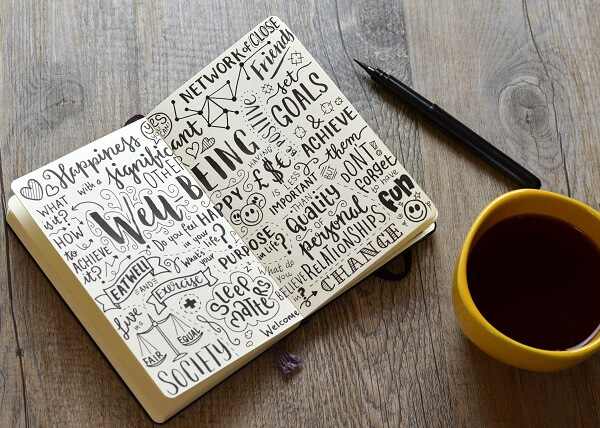 Happiness
with a significant
OTHER
yes you can
WHAT is it?
HOW to ACHIEVE it?
Well BEING
Do you feel HAPPY
in your life?
What's your
PURPOSE
in life?
EAT WELL
AND
Exercise
Sleep
MATTERS
Live in a
FAIR
EQUAL
SOCIETY
NETWORK of CLOSE
Friends
set
GOALS
&
ACHIEVE
them
HAVING
INCOME
£ $ €
IS
IMPORTANT
LESS THAN
quality
of
personal
RELATIONSHIPS
DON'T
forget
to have
fun
What do you
BELIEVE in?
Welcome
CHANGE